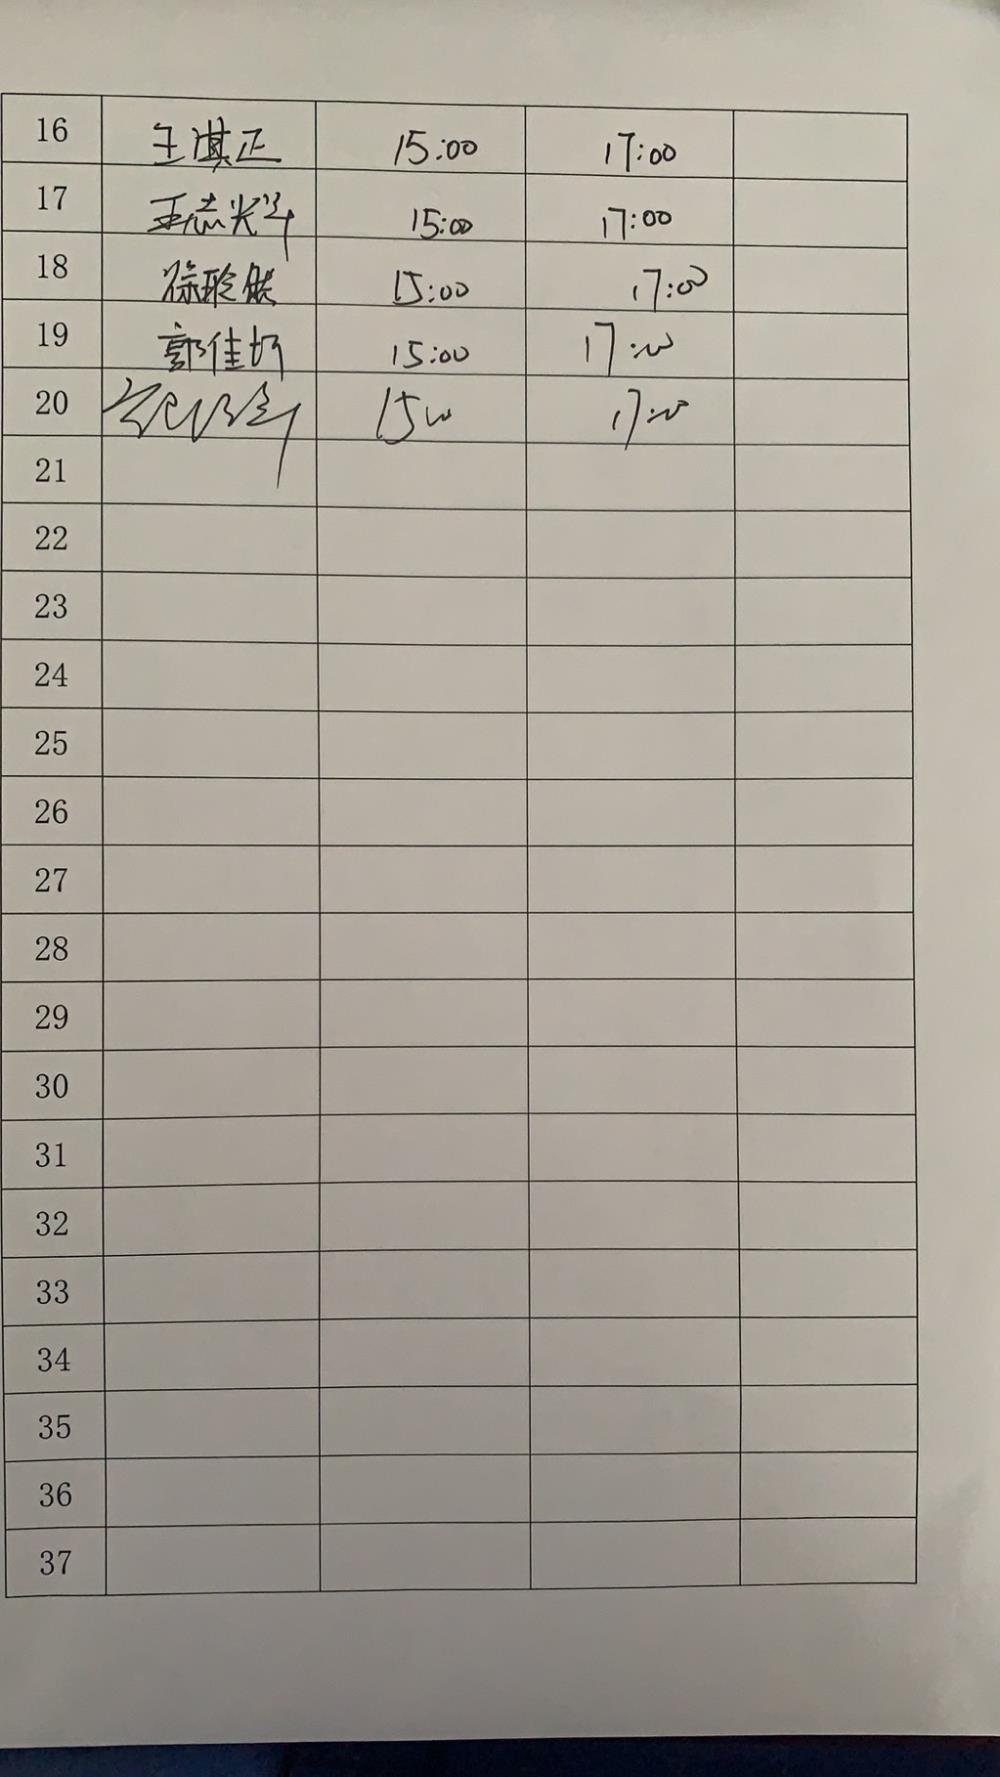 16 王淇正 15:00 17:00
17 王志光 15:00 17:00
18 徐 15:00 17:00
19 郭佳 15:00 17:00
20 1500 17:00
21
22
23
24
25
26
27
28
29
30
31
32
33
34
35
36
37